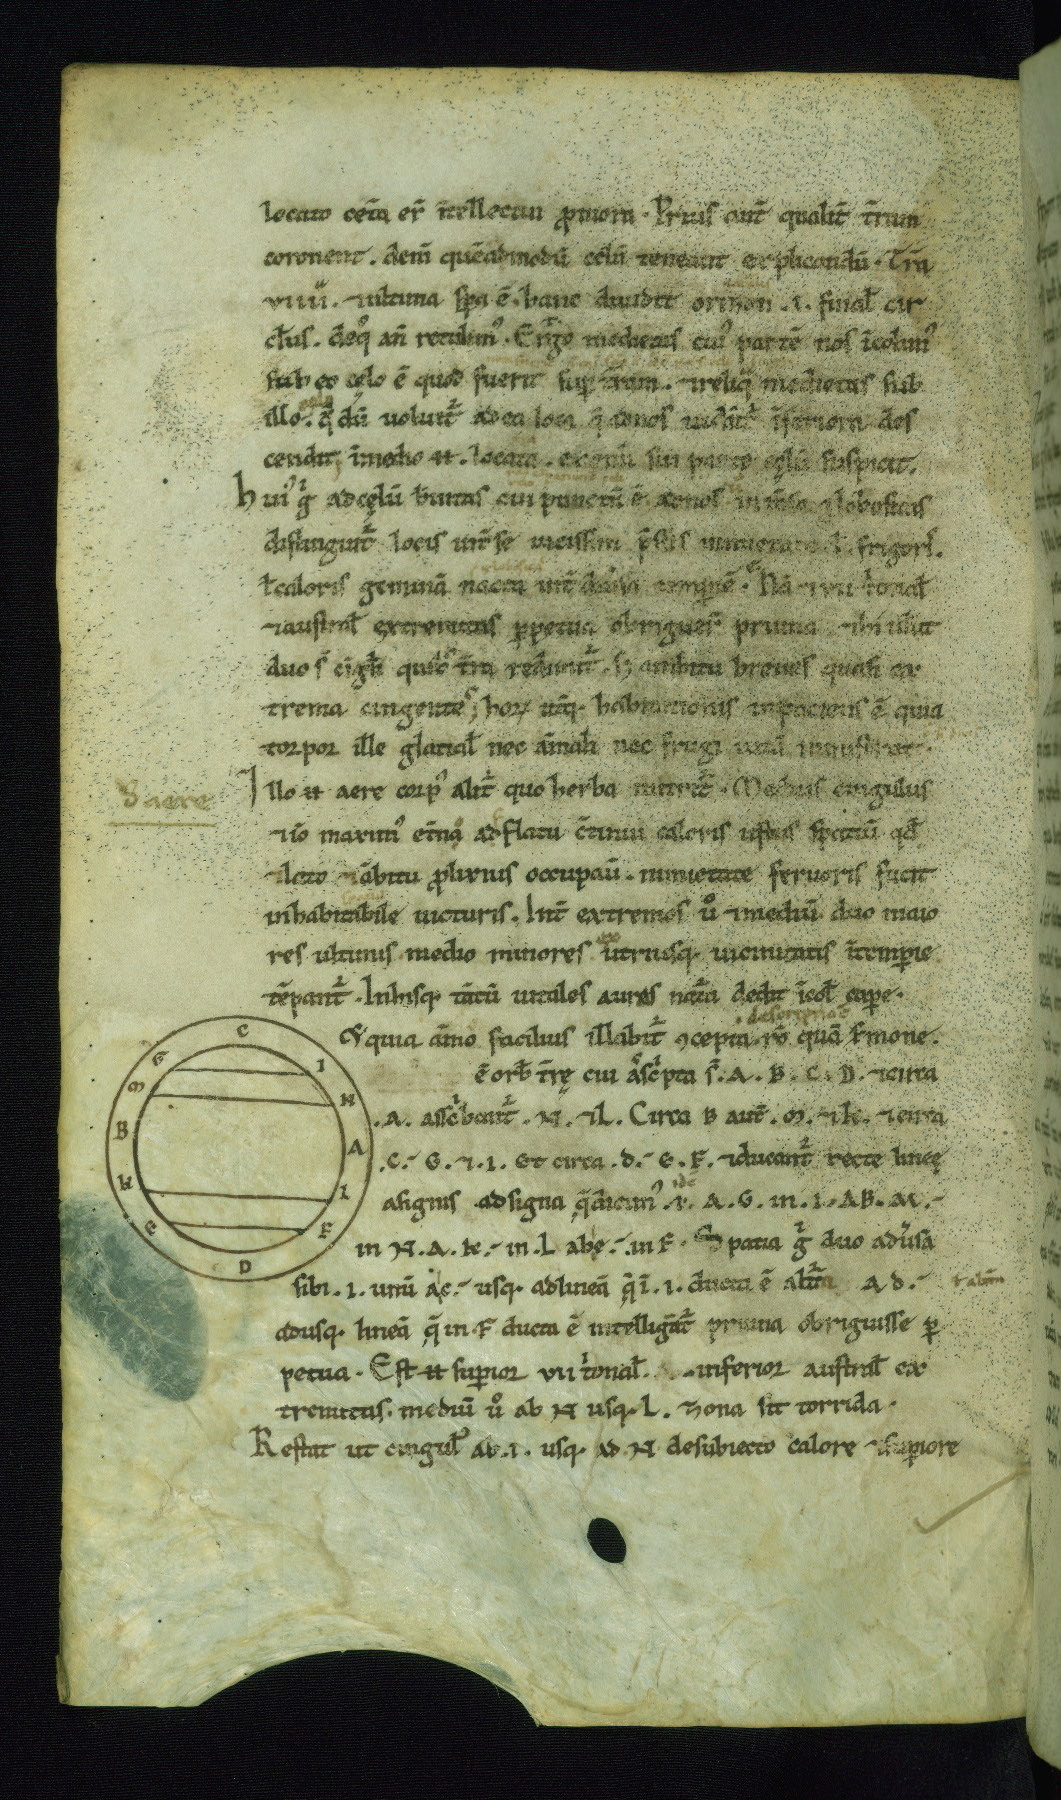 locato cet̄a er̄ īntellectui ꝓmiora. Prius aut̄ qualit̄ t̄ram
coronent. dem̄ quēadmodū celū teneant explicandū. Tr̄a
viiii. ⁊ultima spa ē. hanc diuidit orizon .i. final̄ cir
cl̄us. de quo an̄ retulim᷒. Ergo medietas cui᷒ partē nos īcolim᷒
sub eo celo ē quod fuerit sup t̄ram. ⁊reliq̄ medietas sub
illo. q̄ dū uoluit᷑ ad ea loca q̄ ad nos uident᷑ īferiora des
cendit īmedio .n. locata. ex omī sui parte celū suspicit.
hui᷒ gͥ ad cęlū breuitas cui punctū ē. ad nos uero īmsa globositas
distinguit᷑ locis int̄ se uicissim p̄ssis nimietate ł frigor̄.
ł caloris geminā nacta int̄ diūsa temperiē. Nā ⁊ vii t̄onal̄
⁊austral̄ extremitas ꝑpetua obriguer̄ pruina ⁊hi uelut
duo s̄ cīgl̄i quib᷒ t̄ra redimit᷑. s; ambitu breues quasi ex
trema cingentes. horꝝ ut̄q; habitationis inpaciens ē quia
torpor ille glacial̄ nec aīmali nec frugi uitā ministrat.
Illo .n. aere corp᷒ alit᷑ quo herba nutrit᷑. Medius cingulus
⁊iō maxim᷒ et̄no adflatu ɔ̄tinui caloris ustus spatiū qd̄
⁊lato ⁊ābitu ꝓlixius occupauit. nimietate feruoris facit
inhabitabile uicturis. Int̄ extremos uͦ ⁊mediū duo maio
res ultimis medio minores ut̄riusq; uicinitatis ītemperie
tēperant᷑. Inhisq; tātū uitales auras nat̄a dedit īcol̄ carpe.
Et quia aīmo facilius illabit᷑ ɔcepta rō descriptōe quā sermone.
ē orb̄ t̄rę cui asc̄pta s̄. A. B. C. D. ⁊circa
.A. ascͥbant᷑. N. ⁊L. Circa B aut̄. M. ⁊K. ⁊circa
.C. G. ⁊. I. Et circa .D. E. F. ⁊ducant᷑ recte lineę
asignis .ad signa q̄ dicim᷒ .i. A. G. in. I. AB. M.
in N. A. K. in. L abe. in F. Spatia gͥ duo aduersa
sibi .i. unū ac. usq; ad lineā q̄ ī. i. ducta ē alt̄m A d.
adusq; lineā q̄ in F ducta ē intelligāt᷑ pruina obriguisse ꝑ
petua. Est .n. superior vii t̄onal̄. inferior austral̄ ex
tremitas. mediū uͦ ab N usq; L. zona sit torrida.
Restat ut cingul᷒ ab .i. usq; ad N desubiecto calore ⁊superiore
S aere
ł alt̄m
C
G
I
M
N
B
A
K
L
E
F
D